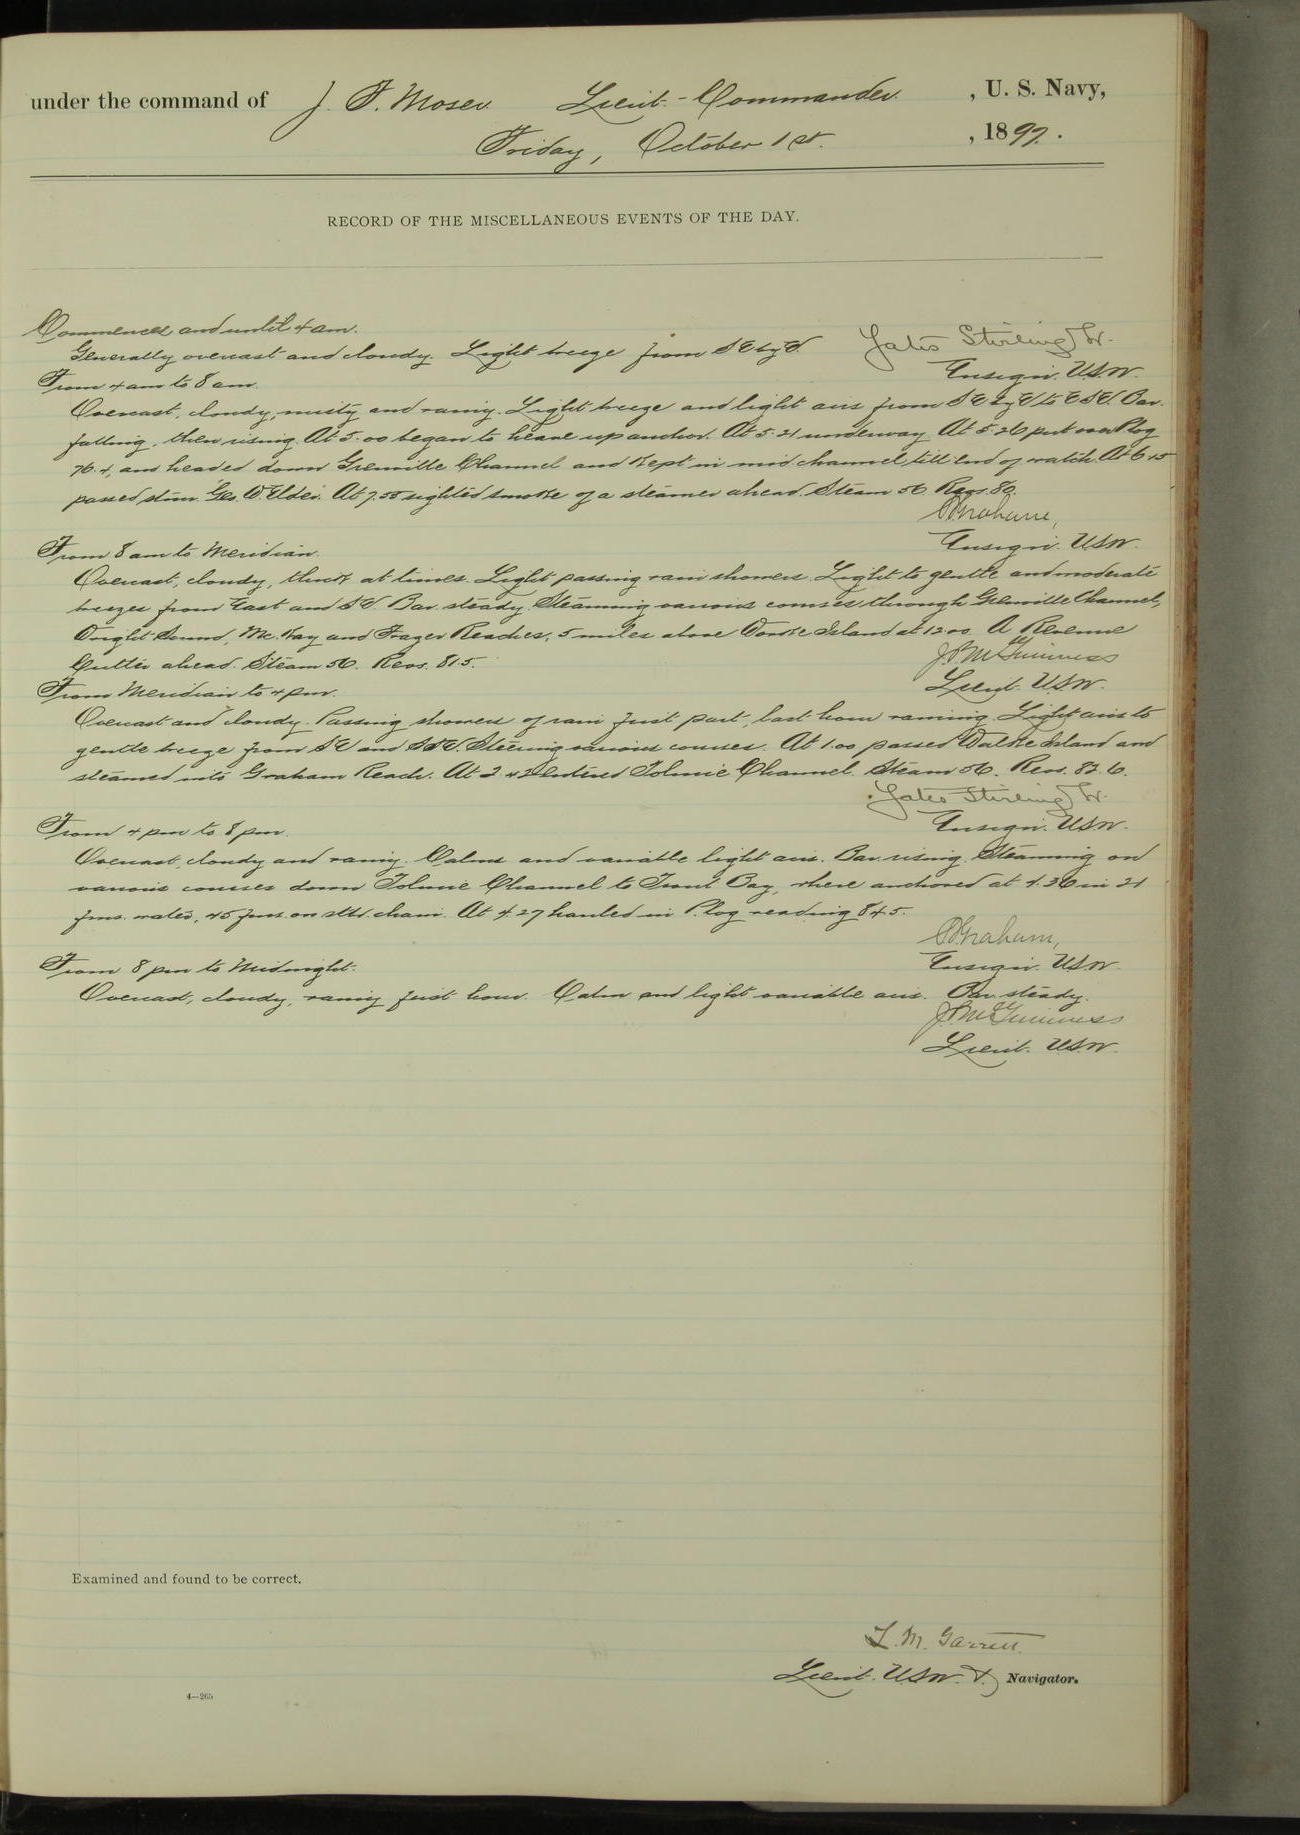 under the command of J. F. Moser Lieut-Commander , U. S. Navy,
Friday, October 1st. , 1897.
RECORD OF THE MISCELLANEOUS EVENTS OF THE DAY.
Commences and until 4 am.
Generally overcast and cloudy. Light breeze from SE by E. Yates Stirling Jr.
Ensign. USN.
From 4 am to 8 am.
Overcast, cloudy, misty and rainy. Light breeze and light airs from SE by E to ESE. Bar.
falling, then rising. At 5.00 began to heave up anchor. At 5.21 underway. At 5.26 put over P log
76.4, and headed down Grenville Channel and kept in mid channel till end of watch. At 6.15
passed stmr. Geo. W. Elder. At 7.55 sighted smoke of a steamer ahead. Steam 56. Revs. 80.
Graham,
Ensign. USN.
From 8 am to Meridian.
Overcast, cloudy, thick at times. Light passing rain showers. Light to gentle and moderate
breezes from East and SE. Bar. steady. Steaming various courses through Grenville Channel,
Wright Sound, Mc.Kay and Frazer Reaches, 5 miles above Work Island at 12.00. A Revenue
Cutter ahead. Steam 56. Revs. 81.5. J. P. McGuinness
Lieut. USN.
From Meridian to 4 pm.
Overcast and cloudy. Passing showers of rain first part, last hour raining. Light airs to
gentle breeze from SE and SSE. Steering various courses. At 1.00 passed Work Island and
steamed into Graham Reach. At 2.42 entered Tolmie Channel. Steam 56. Revs. 82.6.
Yates Stirling Jr.
Ensign. USN.
From 4 pm to 8 pm.
Overcast, cloudy and rainy. Calms and variable light airs. Bar. rising. Steaming on
various courses down Tolmie Channel to Trout Bay, where anchored at 4.36 in 21
fms. water, 45 fms. on stbd. chain. At 4.27 hauled in P. log reading 84.5.
Graham,
Ensign. USN.
From 8 pm to Midnight.
Overcast, cloudy, rainy first hour. Calm and light variable airs. Bar. steady.
J. P. McGuinness
Lieut. USN.
Examined and found to be correct.
L. M. Garrett.
Lieut. USN. & Navigator.
4—265